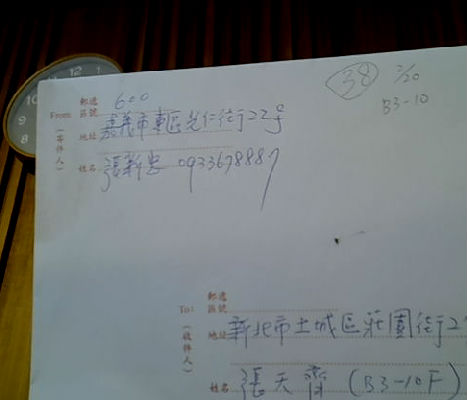 12
10
9
8
38 2/20
B3-10
郵遞區號 600
From: (寄件人)
地址 嘉義市東區光仁街22號
姓名 張新忠 0933678887
To: (收件人)
郵遞區號
地址 新北市土城區莊園街2
姓名 張天齊 (B3-10F)